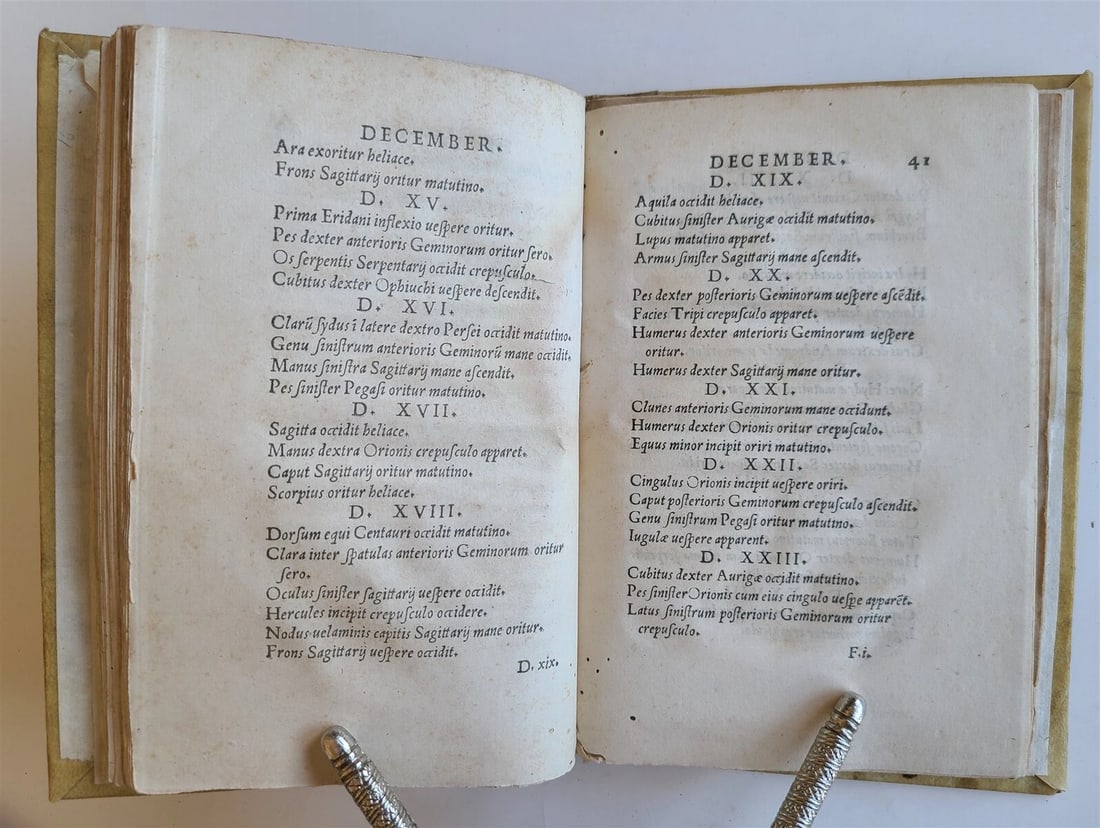 DECEMBER.
Ara exoritur heliace.
Frons Sagittarij oritur matutino.
D. XV.
Prima Eridani inflexio uespere oritur.
Pes dexter anterioris Geminorum oritur sero.
Os serpentis Serpentarij occidit crepusculo.
Cubitus dexter Ophiuchi uespere descendit.
D. XVI.
Clarū sydus ī latere dextro Persei occidit matutino.
Genu sinistrum anterioris Geminorū mane occidit.
Manus sinistra Sagittarij mane ascendit.
Pes sinister Pegasi oritur matutino.
D. XVII.
Sagitta occidit heliace.
Manus dextra Orionis crepusculo apparet.
Caput Sagittarij oritur matutino.
Scorpius oritur heliace.
D. XVIII.
Dorsum equi Centauri occidit matutino.
Clara inter spatulas anterioris Geminorum oritur
sero.
Oculus sinister sagittarij uespere occidit.
Hercules incipit crepusculo occidere.
Nodus uelaminis capitis Sagittarij mane oritur.
Frons Sagittarij uespere occidit.
D. xix.
DECEMBER. 41
D. XIX.
Aquila occidit heliace.
Cubitus sinister Aurigæ occidit matutino.
Lupus matutino apparet.
Armus sinister Sagittarij mane ascendit.
D. XX.
Pes dexter posterioris Geminorum uespere ascēdit.
Facies Tripi crepusculo apparet.
Humerus dexter anterioris Geminorum uespere
oritur.
Humerus dexter Sagittarij mane oritur.
D. XXI.
Clunes anterioris Geminorum mane occidunt.
Humerus dexter Orionis oritur crepusculo.
Equus minor incipit oriri matutino.
D. XXII.
Cingulus Orionis incipit uespere oriri.
Caput posterioris Geminorum crepusculo ascendit.
Genu sinistrum Pegasi oritur matutino.
Iugulæ uespere apparent.
D. XXIII.
Cubitus dexter Aurigæ occidit matutino.
Pes sinister Orionis cum eius cingulo uespe apparēt.
Latus sinistrum posterioris Geminorum oritur
crepusculo.
F.i.